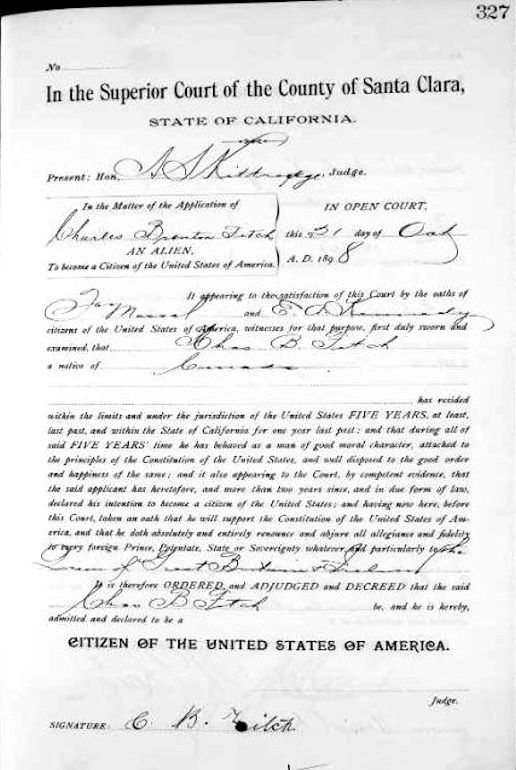 327
No
In the Superior Court of the County of Santa Clara,
STATE OF CALIFORNIA.
Present: Hon. A S Kittredge, Judge.
In the Matter of the Application of
Charles Brenton Fitch
AN ALIEN,
To become a Citizen of the United States of America.
IN OPEN COURT,
this 21 day of Oct
A. D. 1898
It appearing to the satisfaction of this Court by the oaths of
Jay and E.
citizens of the United States of America, witnesses for that purpose, first duly sworn and
examined, that Chas B. Fitch
a native of Canada
has resided
within the limits and under the jurisdiction of the United States FIVE YEARS, at least,
last past, and within the State of California for one year last past; and that during all of
said FIVE YEARS' time he has behaved as a man of good moral character, attached to
the principles of the Constitution of the United States, and well disposed to the good order
and happiness of the same; and it also appearing to the Court, by competent evidence, that
the said applicant has heretofore, and more than two years since, and in due form of law,
declared his intention to become a citizen of the United States; and having now here, before
this Court, taken an oath that he will support the Constitution of the United States of Ame-
rica, and that he doth absolutely and entirely renounce and abjure all allegiance and fidelity
to every foreign Prince, Potentate, State or Sovereignty whatever, and particularly to the
Queen of Great Britain & Ireland
It is therefore ORDERED and ADJUDGED and DECREED that the said
Chas B Fitch be, and he is hereby,
admitted and declared to be a
CITIZEN OF THE UNITED STATES OF AMERICA.
Judge.
SIGNATURE: C. B. Fitch